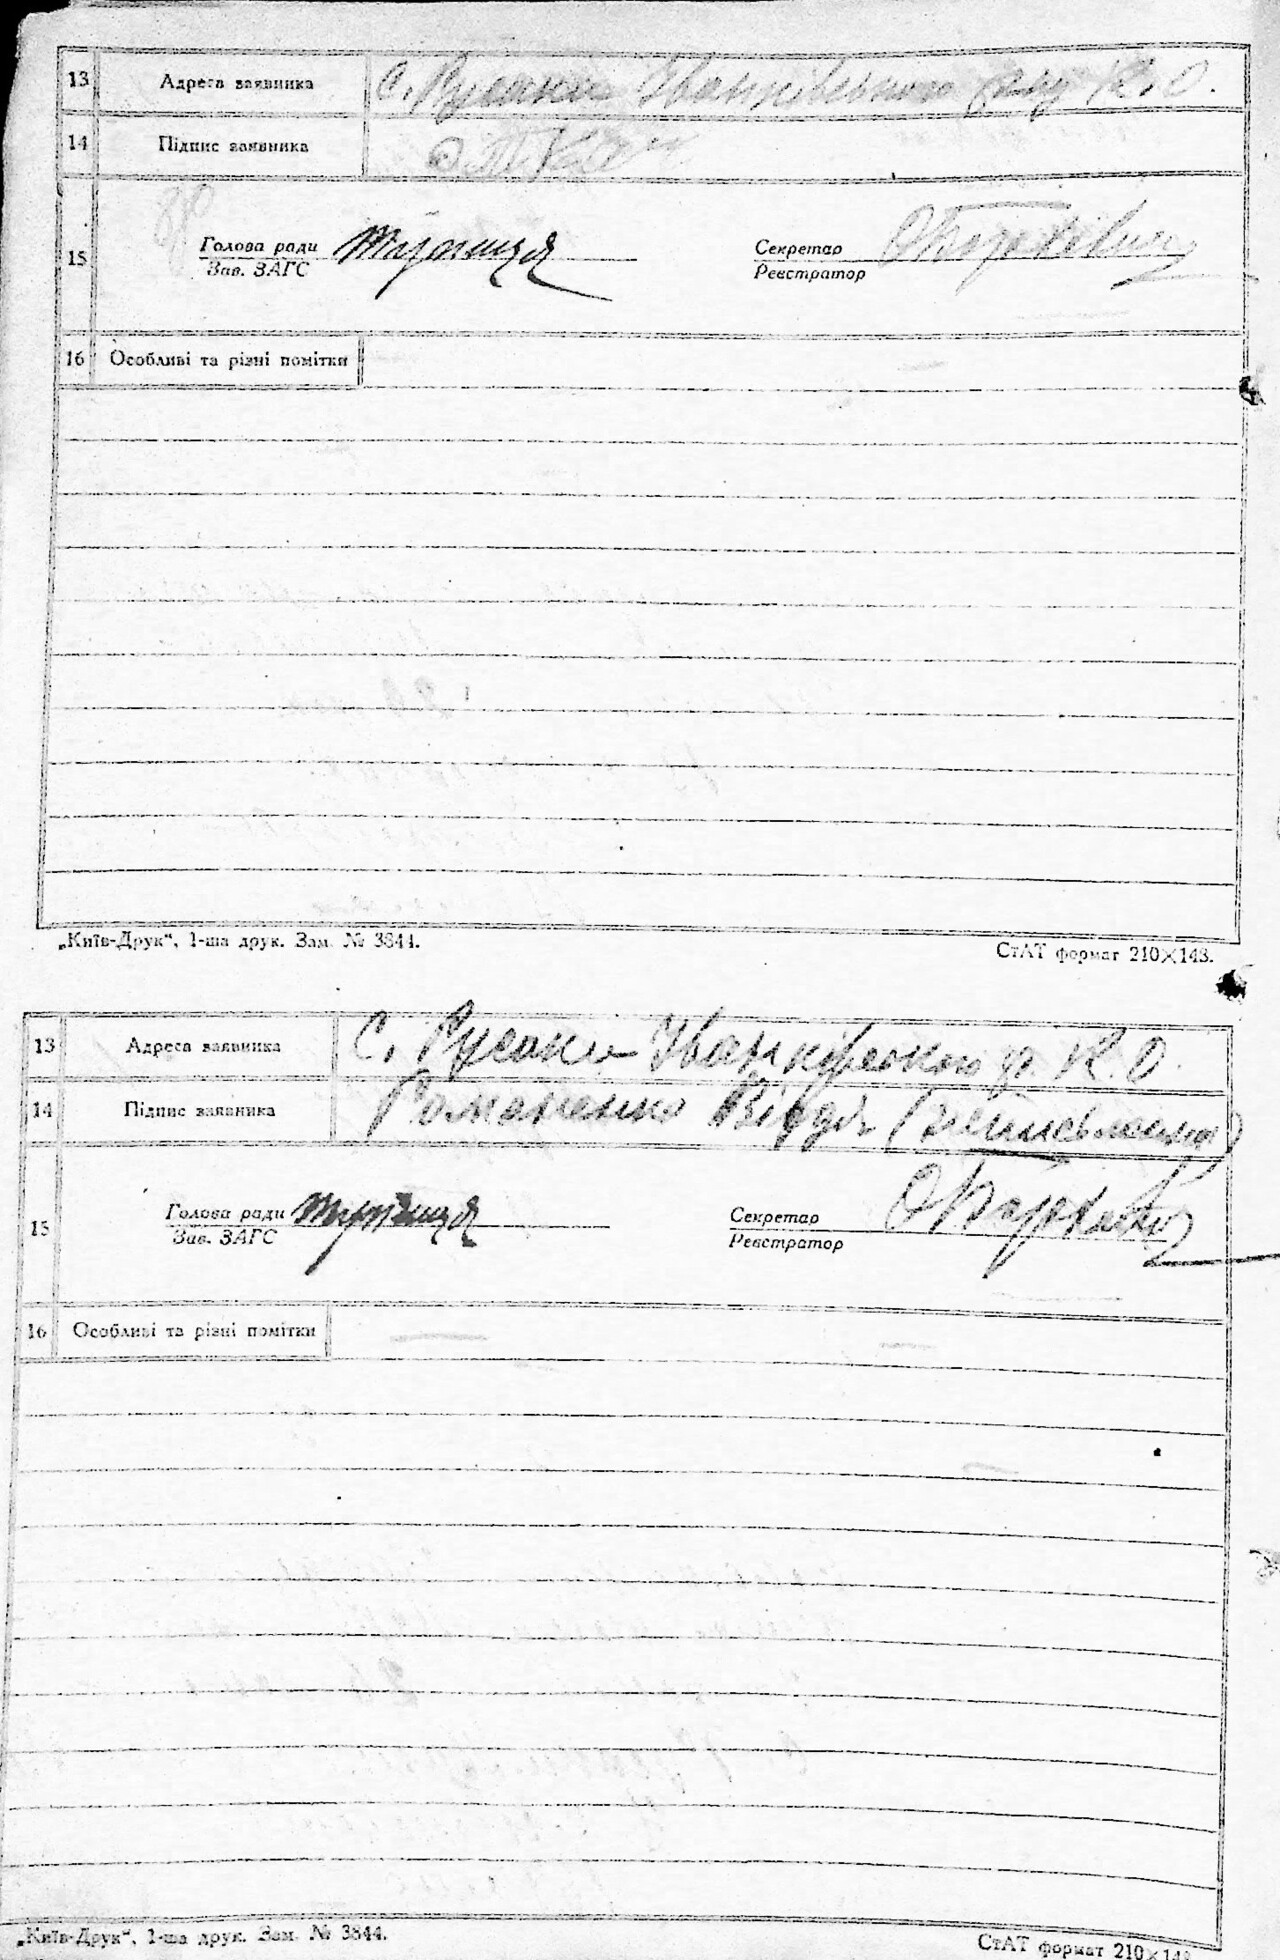 13 Адреса заявника С. Русаки Іванківського р-ну К. О.
14 Підпис заявника Ткач
15 Голова ради Секретар
Зав. ЗАГС Реєстратор
16 Особливі та різні помітки
„Київ-Друк“, 1-ша друк. Зам. № 3844. СтАТ формат 210×148.
13 Адреса заявника С. Русаки Іванківського р. К. О.
14 Підпис заявника Романенко (неписьменна)
15 Голова ради Секретар
Зав. ЗАГС Реєстратор
16 Особливі та різні помітки
„Київ-Друк“, 1-ша друк. Зам. № 3844. СтАТ формат 210×148